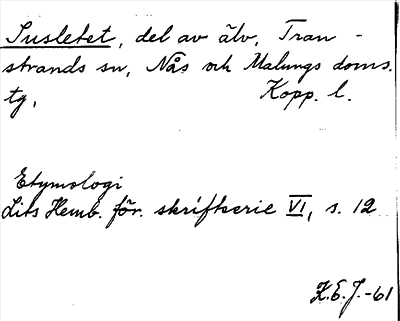 Susletet, del av älv, Tran-
strands sn, Nås och Malungs doms.
tg, Kopp. l.
Etymologi
Lits Hemb. för. skriftserie VI, s. 12
K.E.J.-61